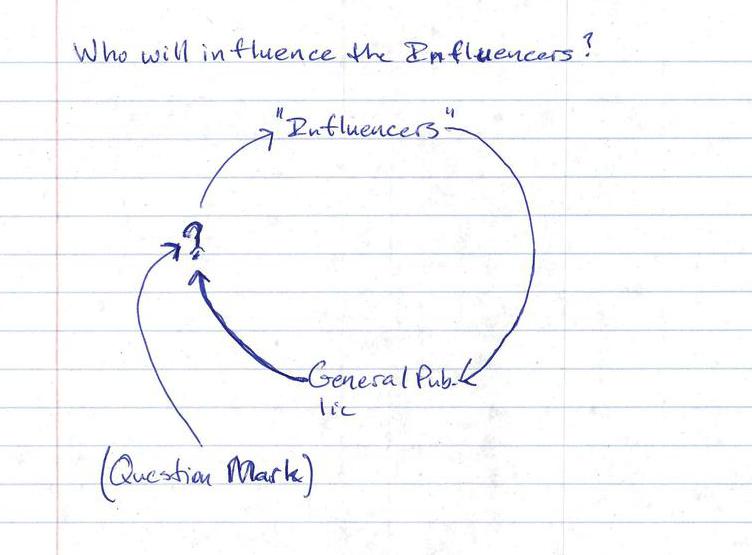 Who will influence the Influencers?
"Influencers"
?
General Pub-
lic
(Question Mark)